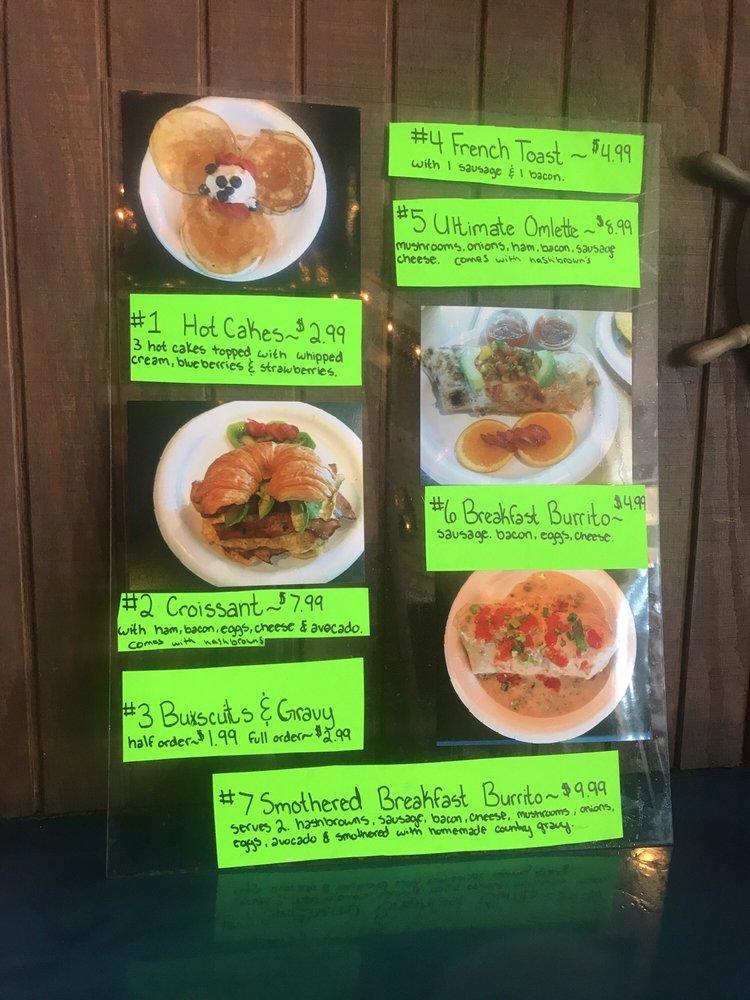 #1 Hot Cakes~$2.99
3 hot cakes topped with whipped
cream, blueberries & strawberries.
#2 Croissant~$7.99
with ham, bacon, eggs, cheese & avocado.
comes with hashbrowns
#3 Buiscuits & Gravy
half order~$1.99 full order~$2.99
#4 French Toast ~$4.99
with 1 sausage & 1 bacon.
#5 Ultimate Omlette~$8.99
mushrooms, onions, ham, bacon, sausage
cheese. comes with hashbrown's
#6 Breakfast Burrito~$4.99
sausage. bacon, eggs, cheese.
#7 Smothered Breakfast Burrito~$9.99
serves 2. hashbrowns, sausage, bacon, cheese, mushrooms, onions,
eggs, avocado & smothered with homemade country gravy.